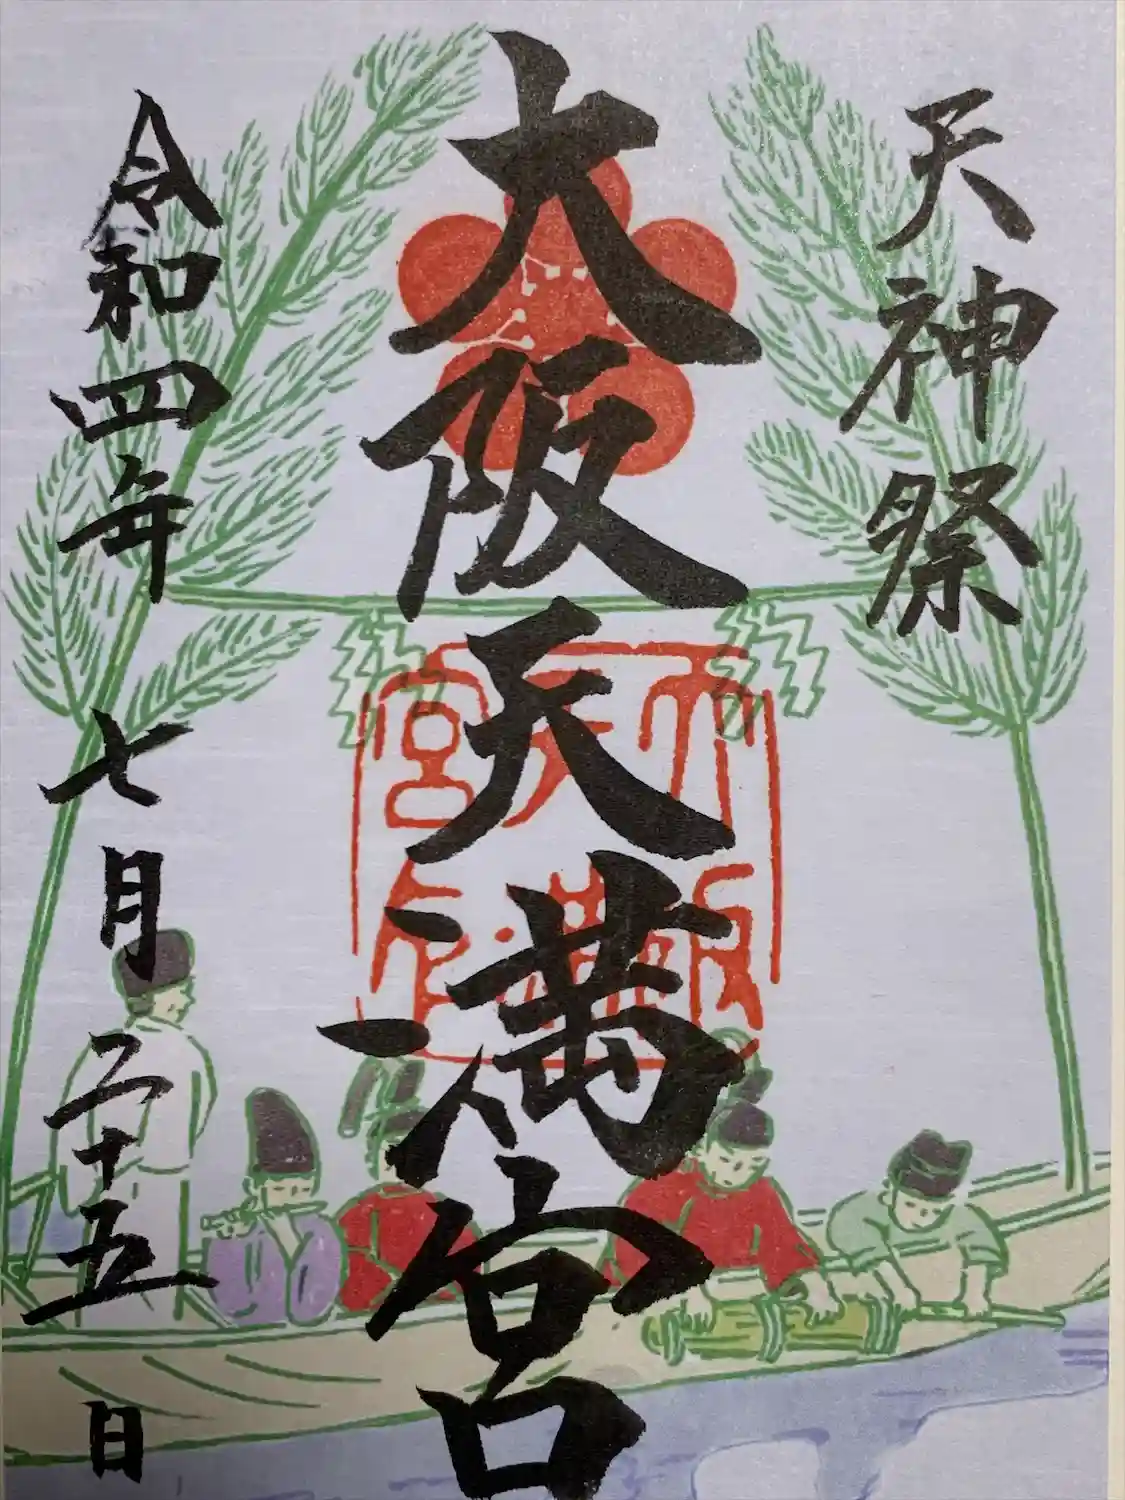 天神祭
大阪天満宮
令和四年七月二十五日
大阪天満宮印